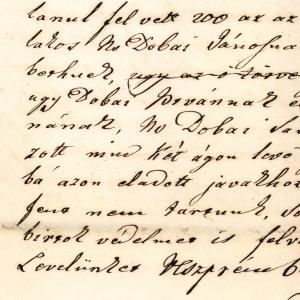 tanul fel vett 200 az az
lakos No Dobai Jánosna
berkuek, ugy az ő törve
ugy Dobai Istvánnak é
nának, No Dobai Sa
zott mind két ágon levő
bá azon eladott javakhoz
fens nem tartunk, s
birtok védelmet is felv
Levelünket Veszprém